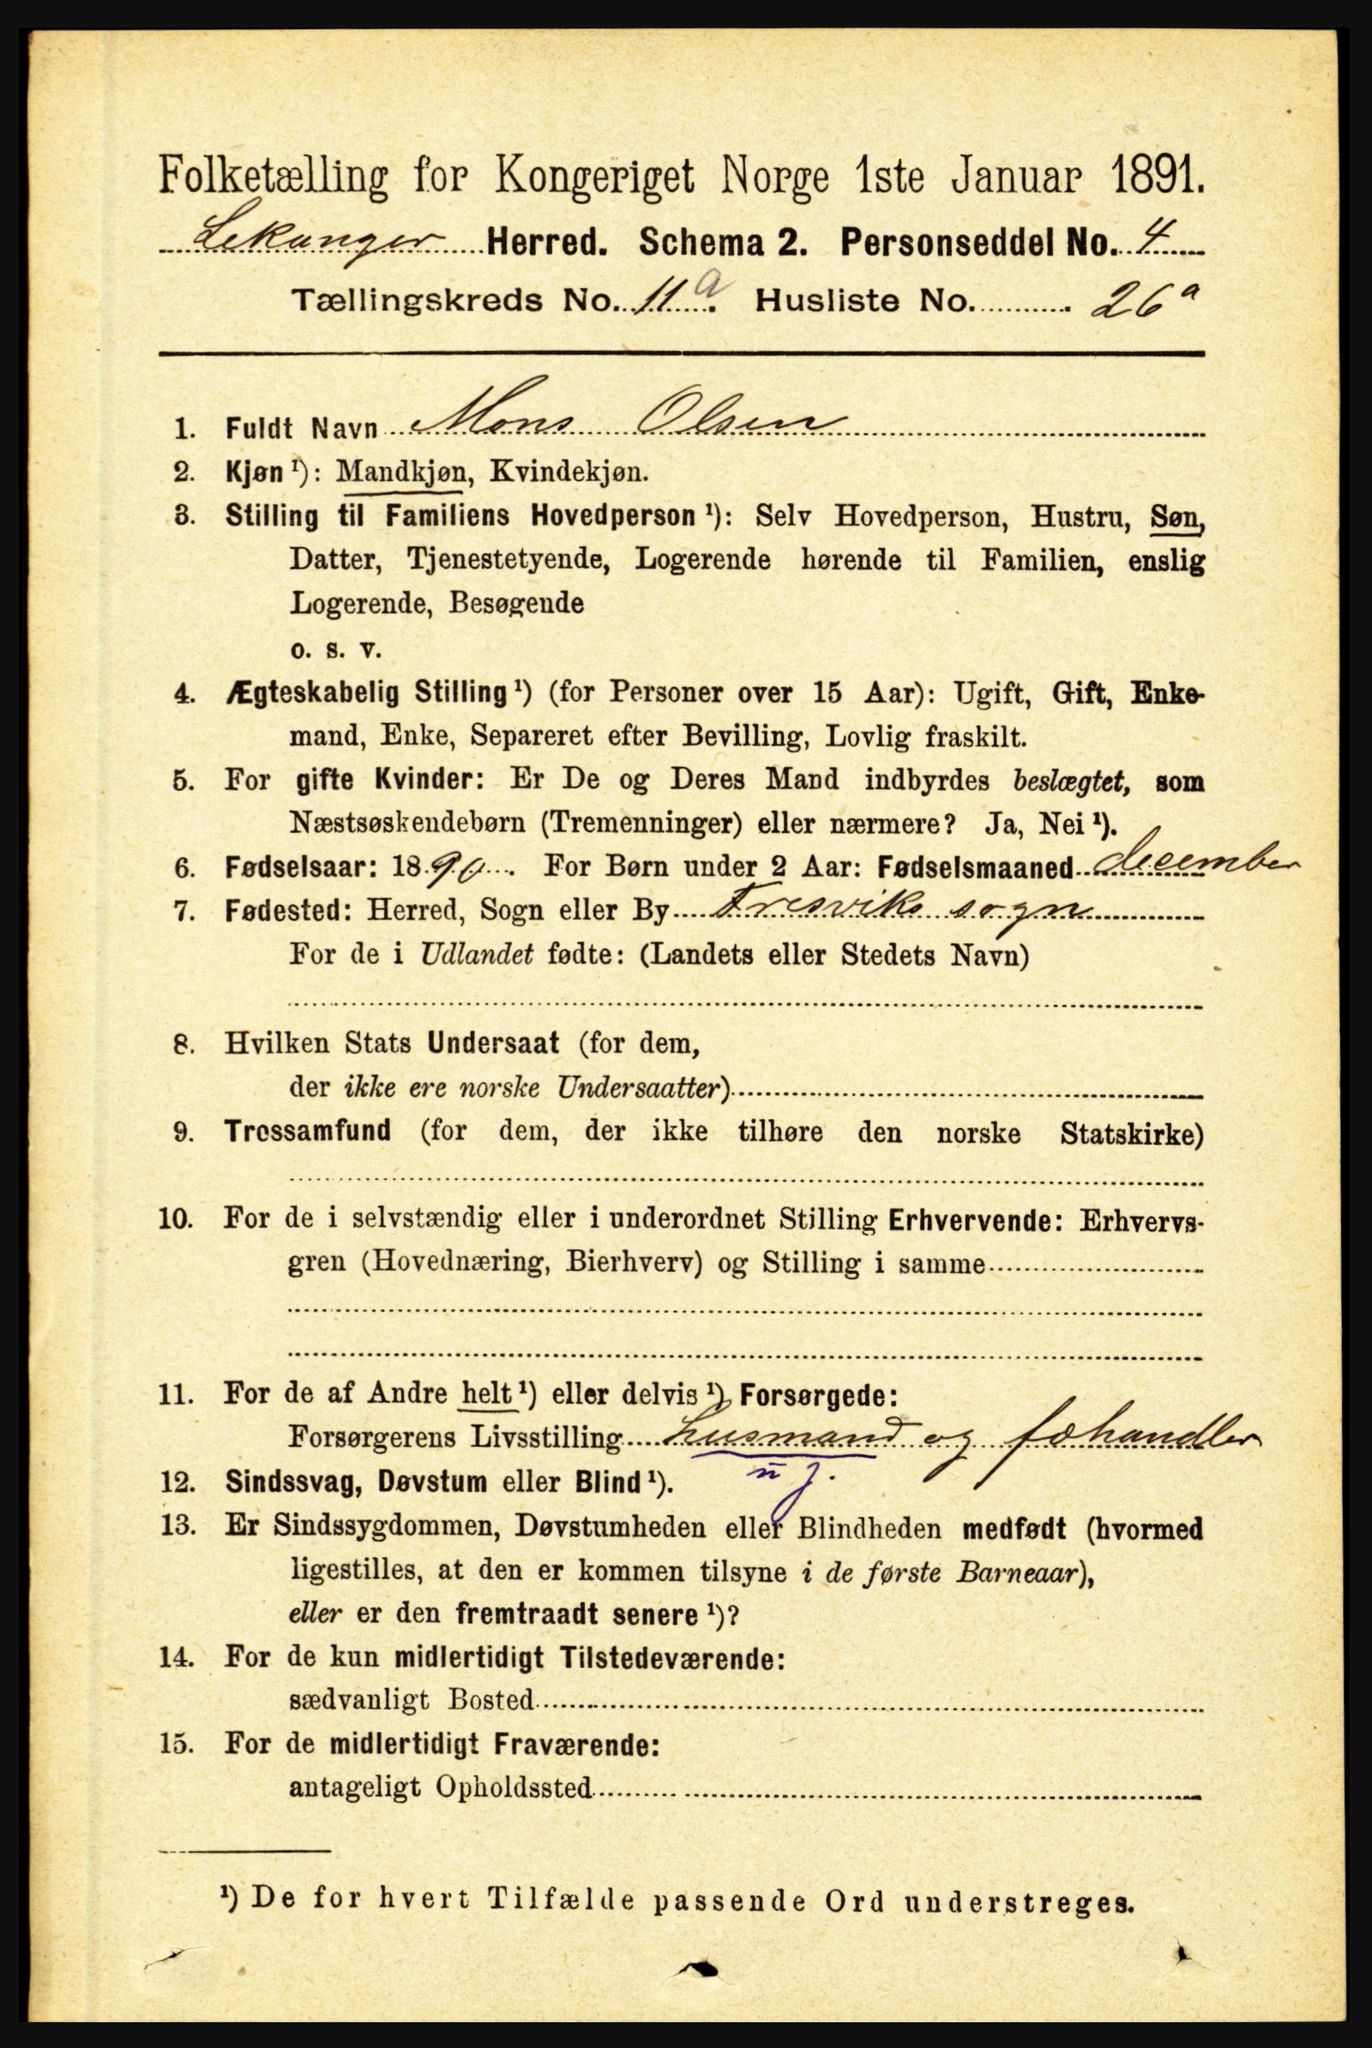 Folketælling for Kongeriget Norge 1ste Januar 1891.
Lekanger Herred. Schema 2. Personseddel No. 4
Tællingskreds No. 11 a. Husliste No. 26 a
1. Fuldt Navn Mons Olsen
2. Kjøn ¹): Mandkjøn, Kvindekjøn.
3. Stilling til Familiens Hovedperson ¹): Selv Hovedperson, Hustru, Søn,
Datter, Tjenestetyende, Logerende hørende til Familien, enslig
Logerende, Besøgende
o. s. v.
4. Ægteskabelig Stilling ¹) (for Personer over 15 Aar): Ugift, Gift, Enke-
mand, Enke, Separeret efter Bevilling, Lovlig fraskilt.
5. For gifte Kvinder: Er De og Deres Mand indbyrdes beslægtet, som
Næstsøskendebørn (Tremenninger) eller nærmere? Ja, Nei ¹).
6. Fødselsaar: 1890. For Børn under 2 Aar: Fødselsmaaned december
7. Fødested: Herred, Sogn eller By Fresviks sogn
For de i Udlandet fødte: (Landets eller Stedets Navn)
8. Hvilken Stats Undersaat (for dem,
der ikke ere norske Undersaatter)
9. Trossamfund (for dem, der ikke tilhøre den norske Statskirke)
10. For de i selvstændig eller i underordnet Stilling Erhvervende: Erhvervs-
gren (Hovednæring, Bierhverv) og Stilling i samme
11. For de af Andre helt ¹) eller delvis ¹) Forsørgede:
Forsørgerens Livsstilling Husmand og fæhandler
12. Sindssvag, Døvstum eller Blind ¹).
13. Er Sindssygdommen, Døvstumheden eller Blindheden medfødt (hvormed
ligestilles, at den er kommen tilsyne i de første Barneaar),
eller er den fremtraadt senere ¹)?
14. For de kun midlertidigt Tilstedeværende:
sædvanligt Bosted
15. For de midlertidigt Fraværende:
antageligt Opholdssted
¹) De for hvert Tilfælde passende Ord understreges.